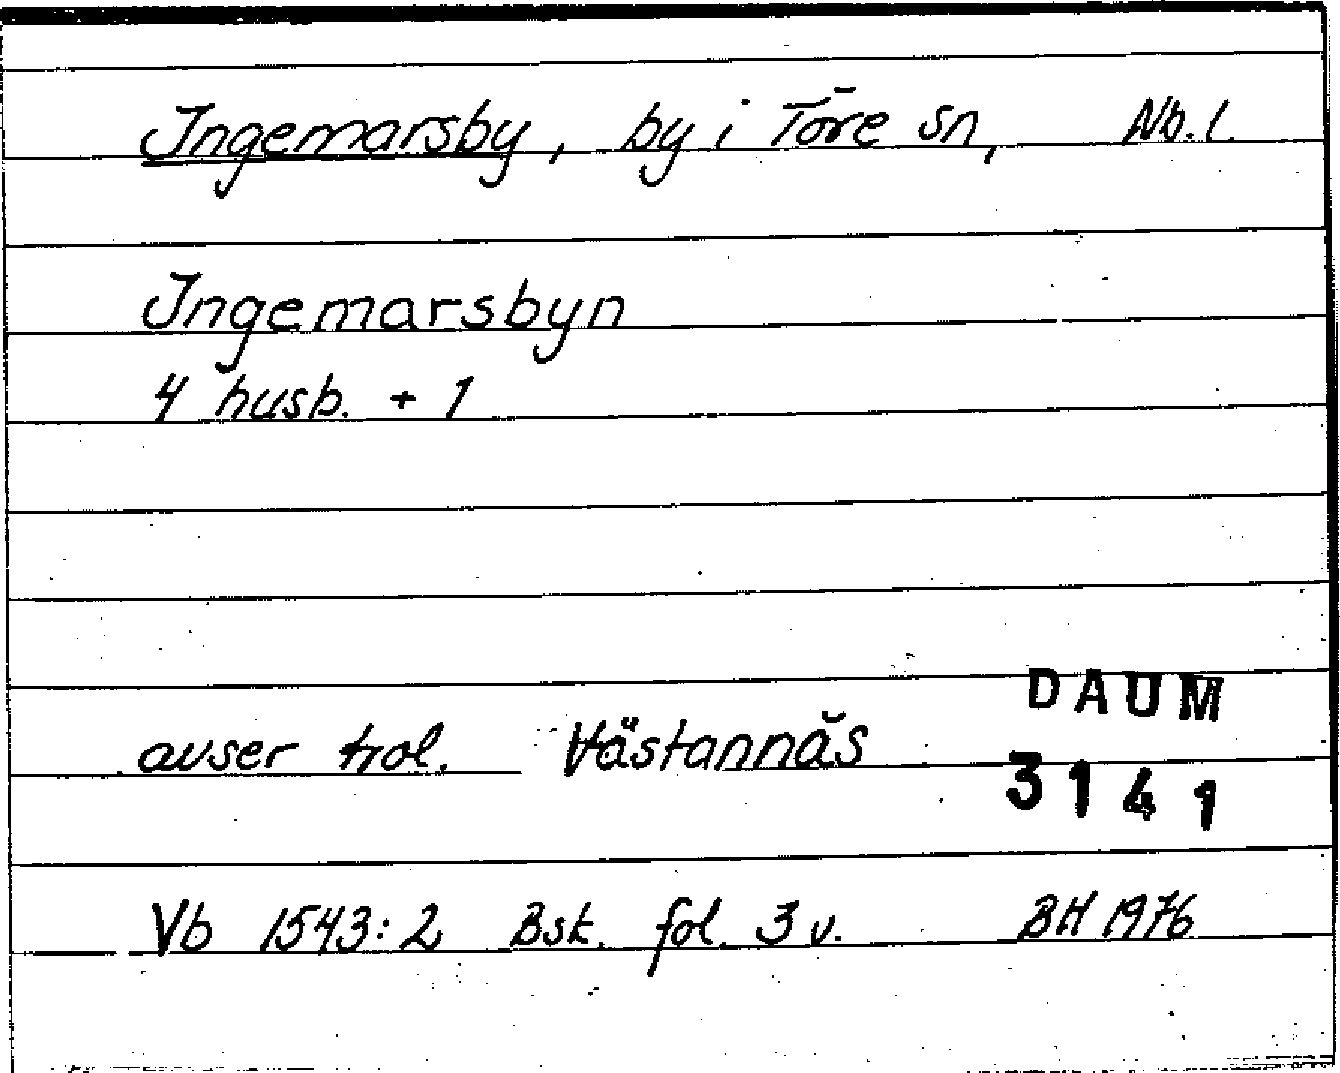 Ingemarsby, by i Töre sn, Nb. l.
Ingemarsbyn
4 husb. + 1
DAUM
avser trol. Västannäs
3141
Vb 1543:2 Bsk. fol. 3 v. BH 1976